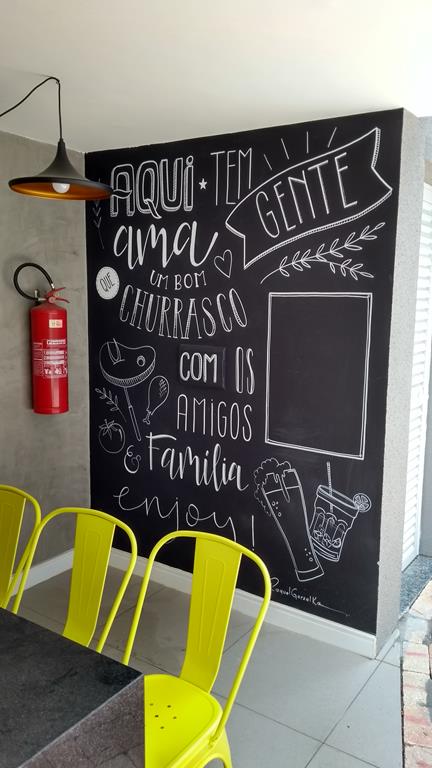 AQUi ★ TEM
GENTE
QUE ama
UM BOM
CHURRASCO
COM OS
AMIGOS
& Família
enjoy!